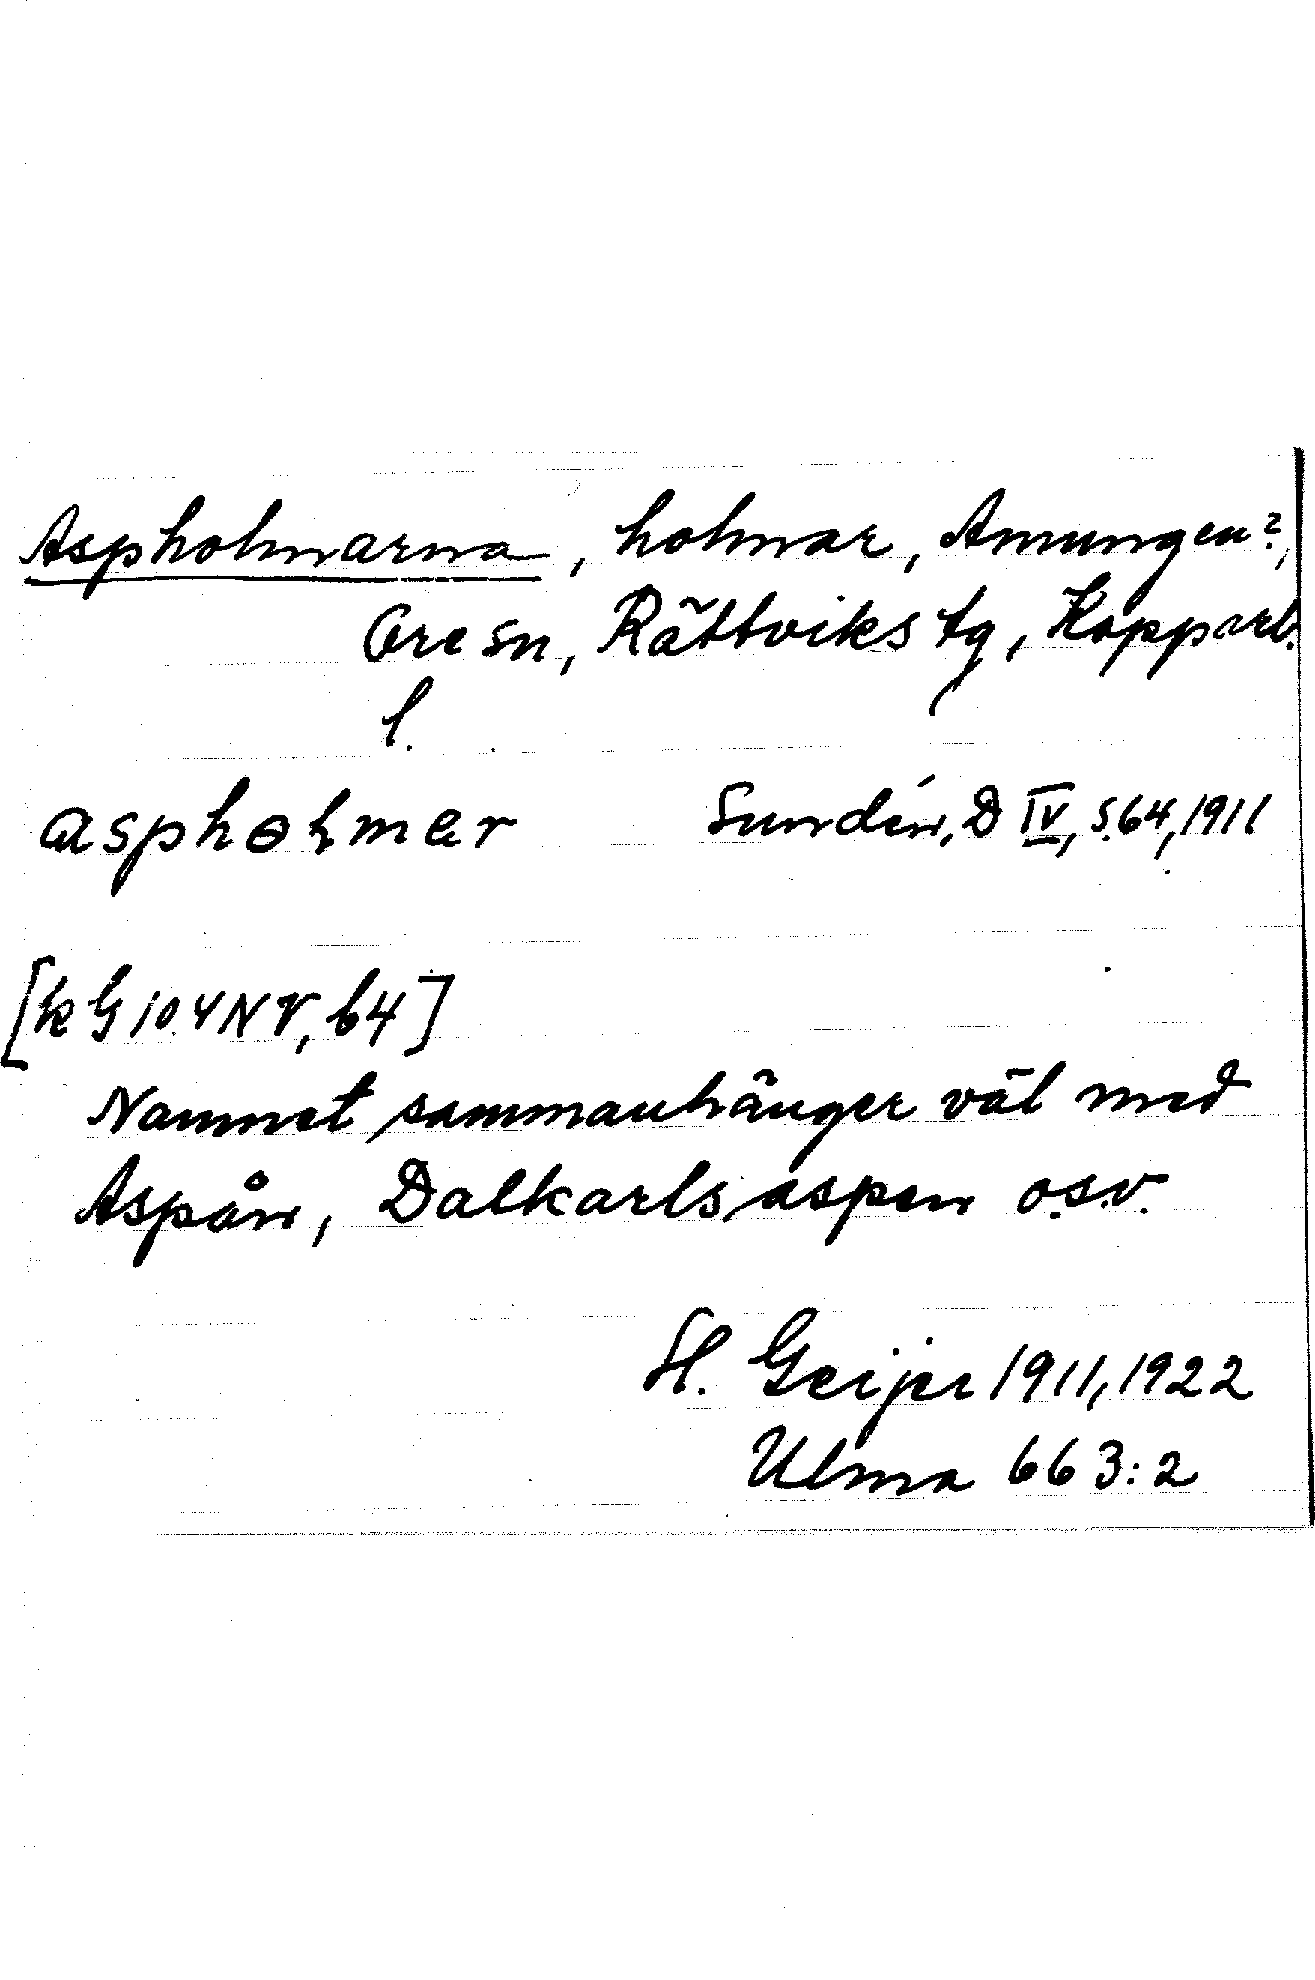 Aspholmarna, holmar, Amungen?,
Ore sn, Rättviks tg, Kopparb.
l.
asphɵlmɐr Sundén, D IV, s.64, 1911
[k G 10.4 N V, 64]
Namnet sammanhänger väl med
Aspån, Dalkarlsaspen o.s.v.
H. Geijer 1911, 1922
Ulma 663:2